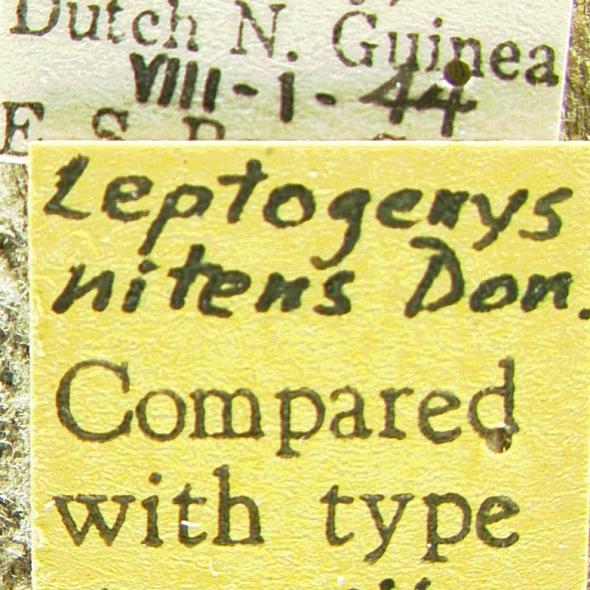 Dutch N. Guinea
VIII-1-44
Leptogenys
nitens Don.
Compared
with type